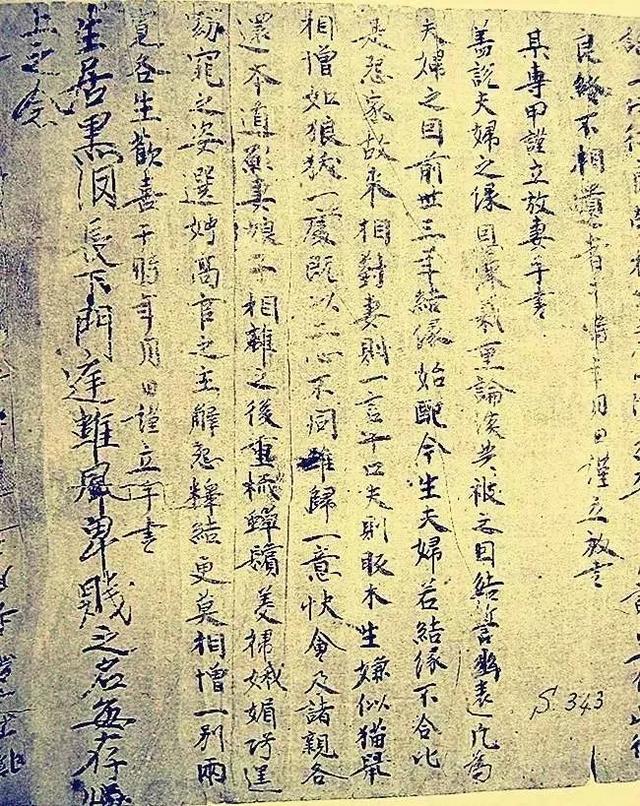 良緣不相遺者于時年月日謹立放書
某專甲謹立放妻手書
蓋說夫婦之緣恩深義重論談共被之因結誓幽遠凡為
夫婦之因前世三年結緣始配今生夫婦若結緣不合比
是怨家故來相對妻則一言十口夫則販木生嫌似猫鼠
相憎如狼羖一處既以二心不同難歸一意快會及諸親各
還本道願妻娘子相離之後重梳蟬鬢美掃娥媚巧逞
窈窕之姿選娉高官之主解怨釋結更莫相憎一別兩
寬各生歡喜于時年月日謹立手書
生居黑長下門庭卑賤之名每存
上之念
S. 343